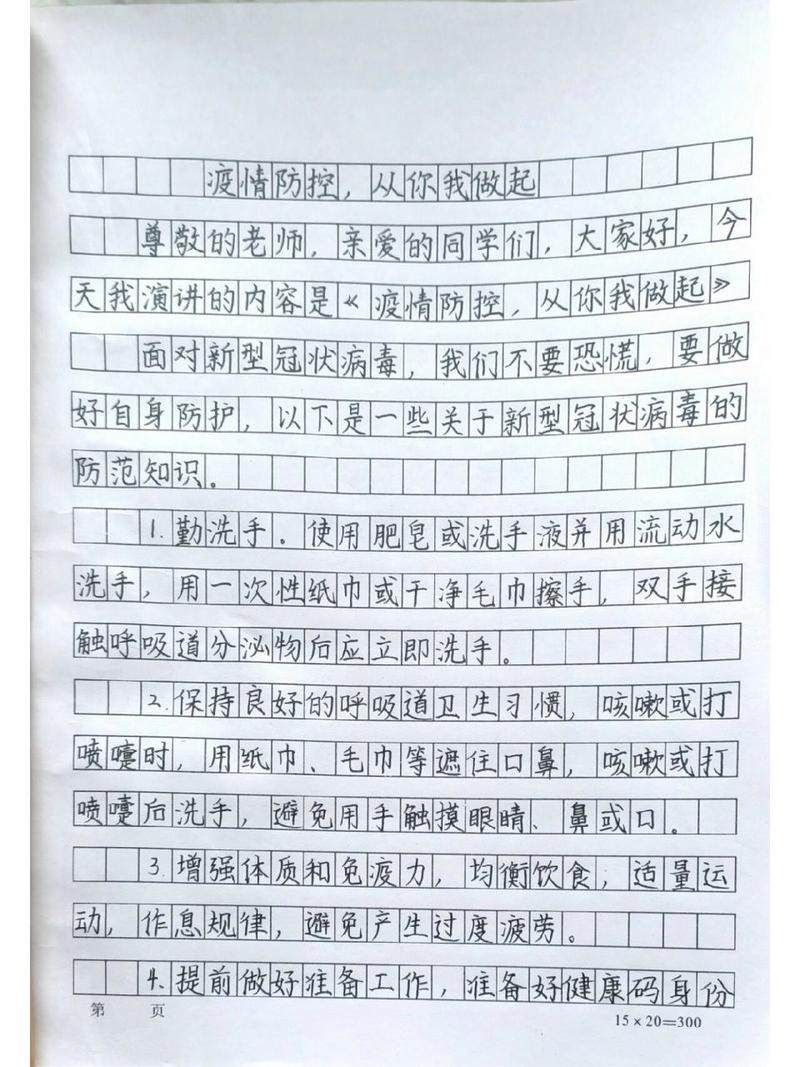 疫情防控，从你我做起
尊敬的老师，亲爱的同学们，大家好，今
天我演讲的内容是《疫情防控，从你我做起》
面对新型冠状病毒，我们不要恐慌，要做
好自身防护，以下是一些关于新型冠状病毒的
防范知识。
1.勤洗手。使用肥皂或洗手液并用流动水
洗手，用一次性纸巾或干净毛巾擦手，双手接
触呼吸道分泌物后应立即洗手。
2.保持良好的呼吸道卫生习惯，咳嗽或打
喷嚏时，用纸巾、毛巾等遮住口鼻，咳嗽或打
喷嚏后洗手，避免用手触摸眼睛、鼻或口。
3.增强体质和免疫力，均衡饮食，适量运
动，作息规律，避免产生过度疲劳。
4.提前做好准备工作，准备好健康码身份
第 页
15×20=300